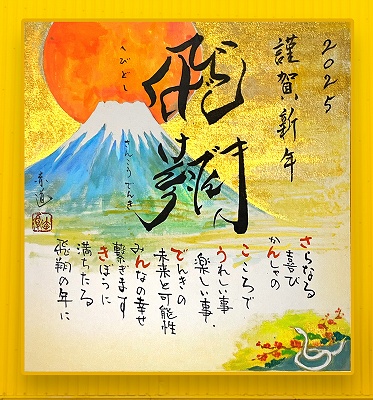 2025
謹賀新年
飛翔
へびどし
さんこうでんき
さらなる
喜び
かんしゃの
こころで
うれしい事
楽しい事、
でんきの
未来と可能性
みんなの幸せ
繋ぎます
きぼうに
満ちたる
飛翔の年に